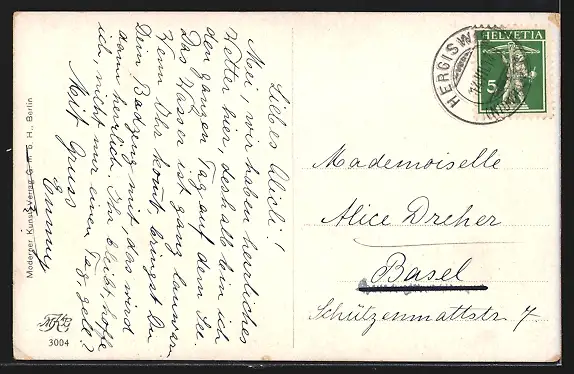 Liebes Alicli!
Mei, wir haben herrliches
Wetter hier, deshalb bin ich
den ganzen Tag auf dem See.
Das Wasser ist ganz lauwarm.
Wenn Ihr komt, bringst Du
Dein Badzeug mit, das wird
dann herrlich. Ihr bleibt hoffe
ich, nicht nur einen Tag, gell?
Mit Gruss
Emmy
Moderner Kunst-Verlag G. m. b. H., Berlin
3004
HERGISW
HELVETIA
5
Mademoiselle
Alice Dreher
Basel
Schützenmattstr 7